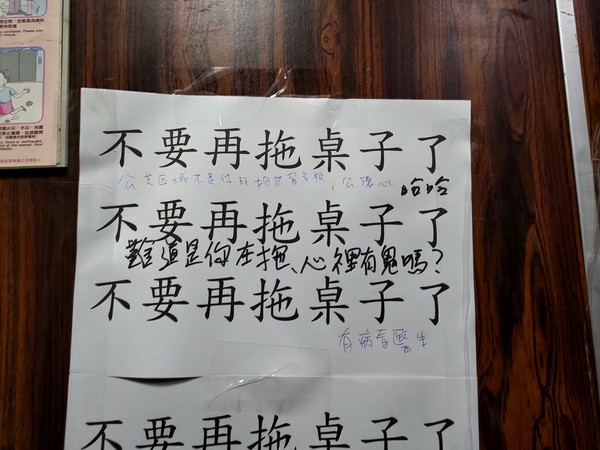 不要再拖桌子了
公共区域不是你的抱怨留言板，公德心
哈哈
不要再拖桌子了
難道是你在拖、心裡有鬼嗎？
不要再拖桌子了
有病看醫生
不要再拖桌子了